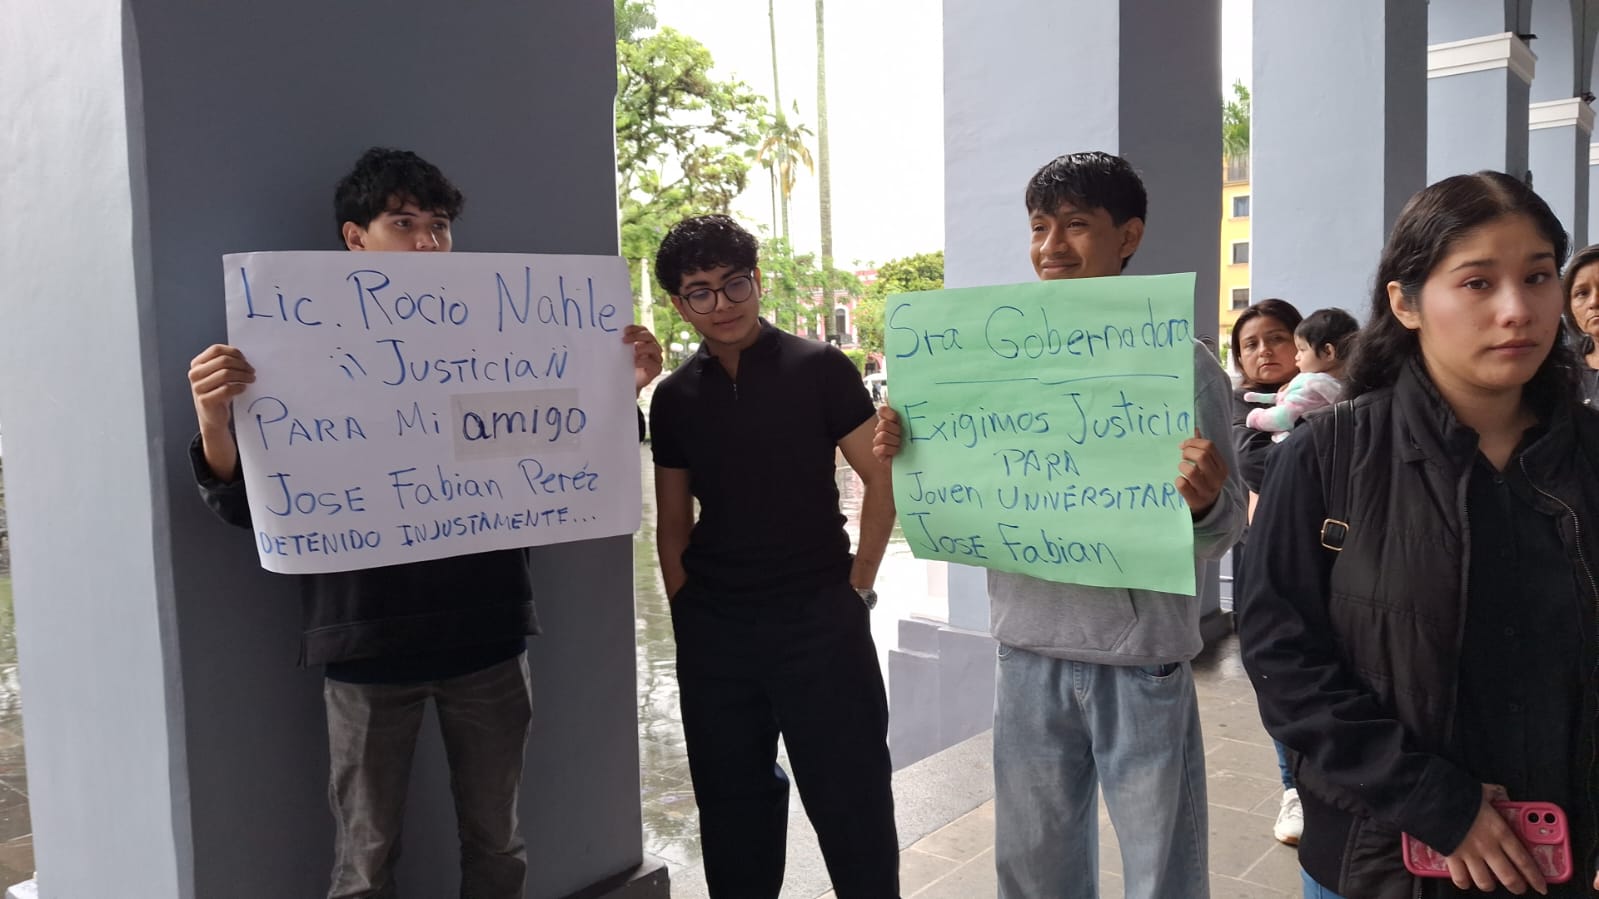 Lic. Rocio Nahle
¡¡ JUSTICIA !!
PARA Mi amigo
JOSE Fabian Peréz
DETENIDO INJUSTAMENTE...
Sra Gobernadora
Exigimos Justicia
PARA
Joven UNIVERSITARI
JOSE Fabian